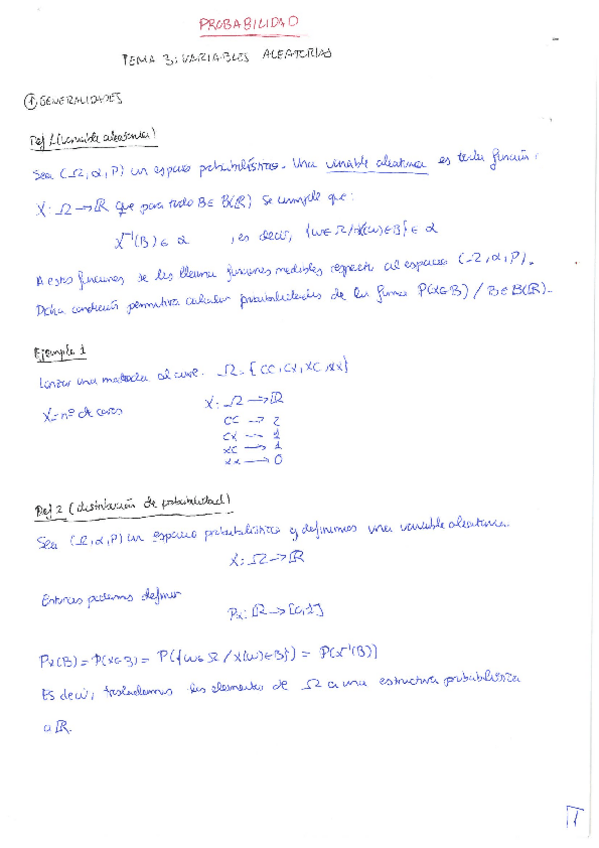 PROBABILIDAD
TEMA 3: VARIABLES ALEATORIAS
① GENERALIDADES
Def 1 (Variable aleatoria)
Sea (Ω, α, P) un espacio probabilístico. Una variable aleatoria es toda función:
X: Ω → ℝ que para todo B ∈ B(ℝ) se cumple que:
X⁻¹(B) ∈ α , es decir, {ω ∈ Ω / X(ω) ∈ B} ∈ α
A estas funciones se les llama funciones medibles respecto al espacio (Ω, α, P).
Dicha condición permitirá calcular probabilidades de la forma P(X∈B) / B ∈ B(ℝ).
Ejemplo 1
Lanzar una moneda al aire. Ω = {CC, CX, XC, XX}
X = nº de caras X: Ω → ℝ
CC → 2
CX → 1
XC → 1
XX → 0
Def 2 (distribución de probabilidad)
Sea (Ω, α, P) un espacio probabilístico y definimos una variable aleatoria.
X: Ω → ℝ
Entonces podemos definir
Px: ℝ → [0,1]
Px(B) = P(X∈B) = P({ω ∈ Ω / X(ω) ∈ B}) = P(X⁻¹(B))
Es decir, trasladamos los elementos de Ω a una estructura probabilística
a ℝ.
1